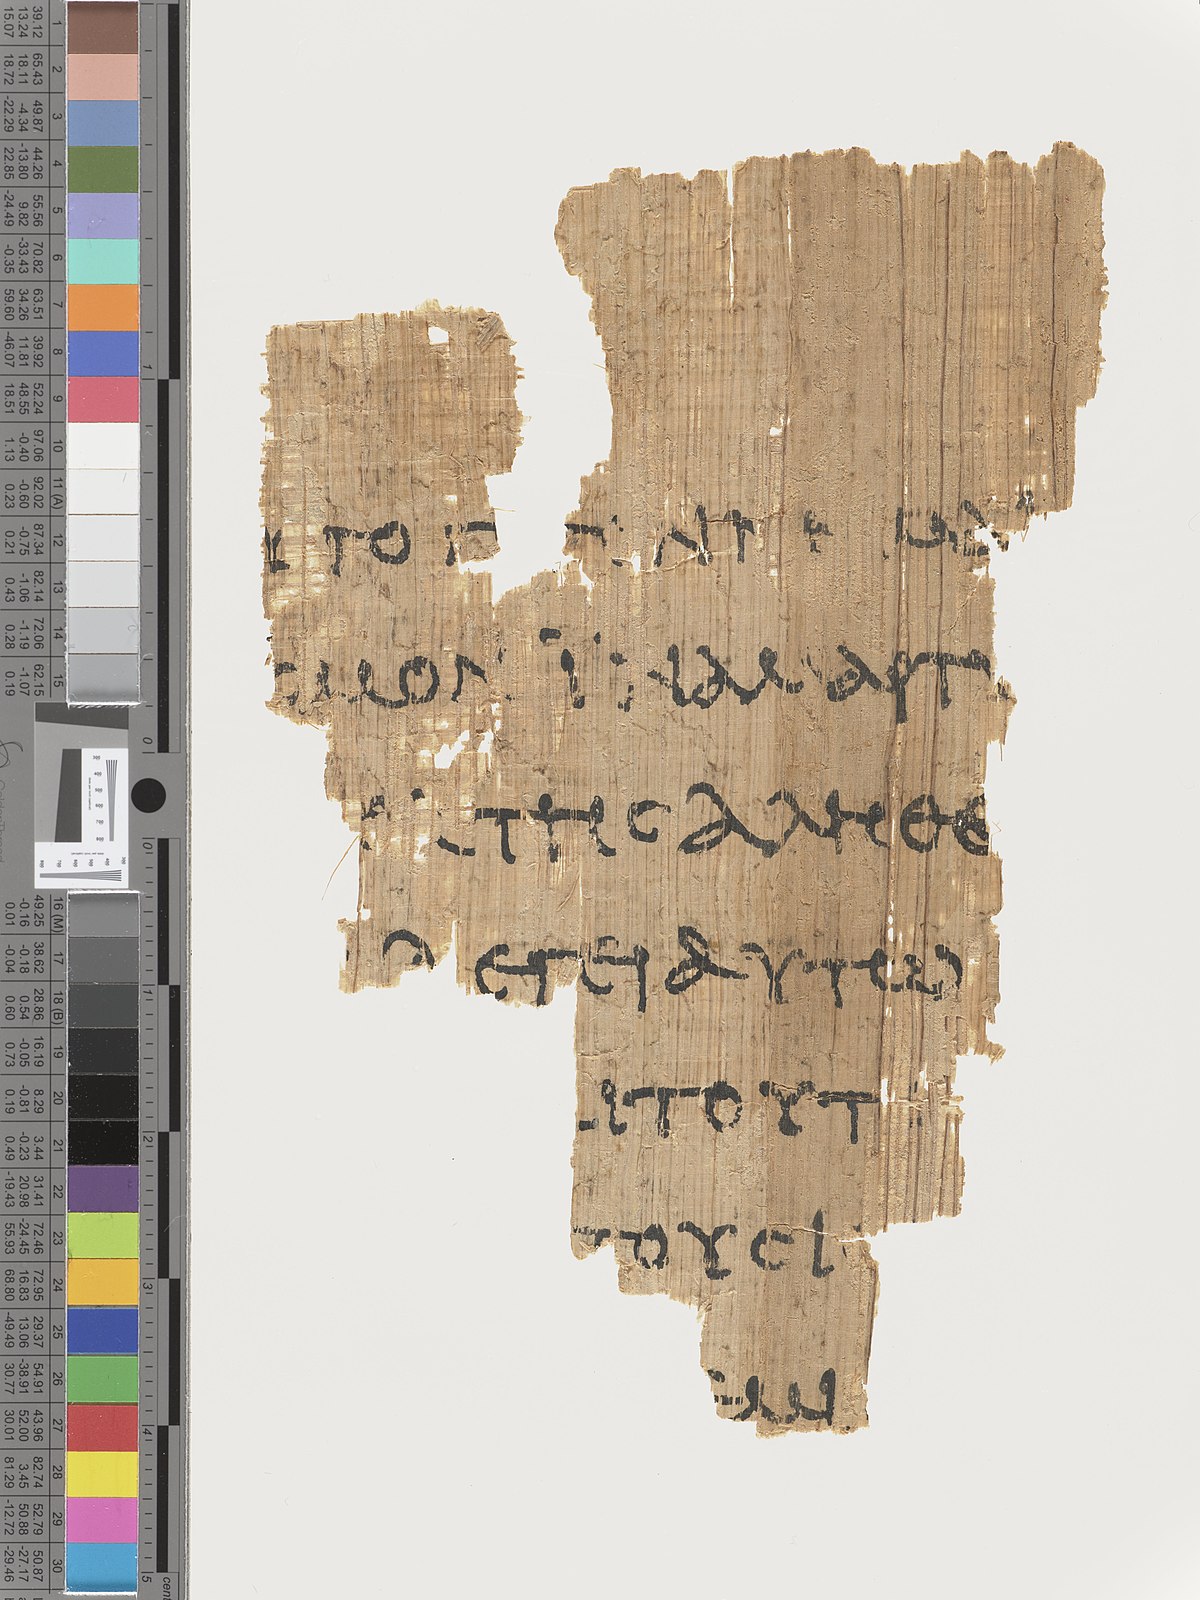 ΤΟ Γ ΓΕΝΝΗΜΑΙ
ΣΜΟΝ ΙΝΑ ΜΑΡΤΥ
Κ ΤΗΣ ΑΛΗΘΕ
ΛΕΓΕΙ ΑΥΤΩ
ΑΙ ΤΟΥΤ
ΤΟΥΣ Ι
ΜΙ
1 2 3 4 5 6 7 8 9 10 11 (A) 12 13 14 15
39.12 65.43 49.87 44.26 55.56 70.82 63.51 39.92 52.24 97.06 92.02 87.34 82.14 72.06 62.15
13.24 18.11 -4.34 -13.80 9.82 -33.43 34.26 11.81 48.55 -0.40 -0.60 -0.75 -1.06 -1.19 -1.07
15.07 18.72 -22.29 22.85 -24.49 -0.35 59.60 -46.07 18.51 1.13 0.23 0.21 0.43 0.28 0.19
16 (M) 17 18 (B) 19 20 21 22 23 24 25 26 27 28 29 30
49.25 38.62 28.86 16.19 8.29 3.44 31.41 72.46 72.95 29.37 54.91 43.96 82.74 52.79 50.87
-0.16 -0.18 0.54 -0.05 -0.81 -0.23 20.98 -24.45 16.83 13.06 -38.91 52.00 3.45 50.88 -27.17
0.01 -0.04 0.60 0.73 0.19 0.49 -19.43 55.93 68.80 -49.49 30.77 30.01 81.29 -12.72 -29.46
1 0
0 1 2 3 4 5